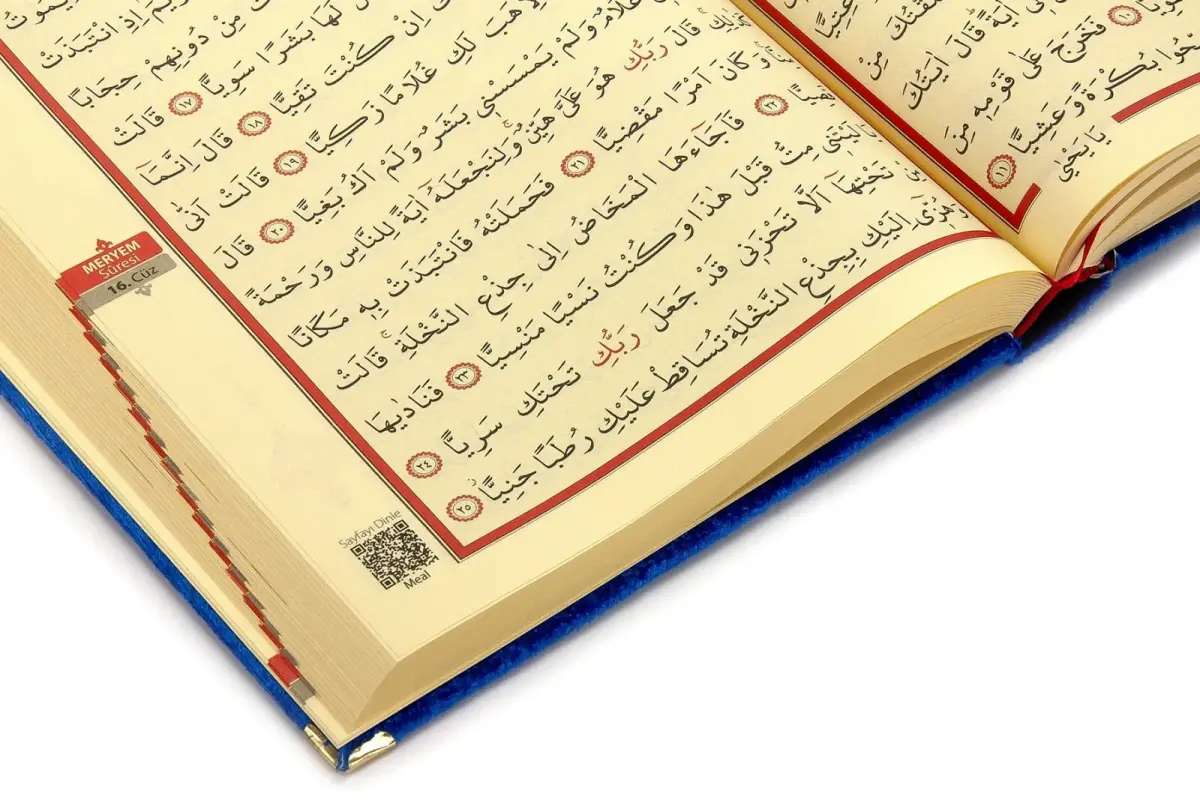 عِتِيًّا
مِنْ
اٰيَةً قَالَ اٰيَتُكَ
١٠ فَخَرَجَ عَلٰى قَوْمِهٖ مِنَ
بُكْرَةً وَعَشِيًّا ١١ يَا يَحْيٰى
اِذِ انْتَبَذَتْ
مِنْ دُونِهِمْ حِجَابًا
لَهَا بَشَرًا سَوِيًّا ١٧ قَالَتْ
اِنْ كُنْتَ تَقِيًّا ١٨ قَالَ اِنَّمَآ
لِاَهَبَ لَكِ غُلَامًا زَكِيًّا ١٩ قَالَتْ اَنّٰى
غُلَامٌ وَلَمْ يَمْسَسْنٖى بَشَرٌ وَلَمْ اَكُ بَغِيًّا ٢٠ قَالَ
كَذٰلِكِ قَالَ رَبُّكِ هُوَ عَلَىَّ هَيِّنٌ وَلِنَجْعَلَهُٓ اٰيَةً لِلنَّاسِ وَرَحْمَةً
مِنَّا وَكَانَ اَمْرًا مَقْضِيًّا ٢١ فَحَمَلَتْهُ فَانْتَبَذَتْ بِهٖ مَكَانًا
قَصِيًّا ٢٢ فَاَجَآءَهَا الْمَخَاضُ اِلٰى جِذْعِ النَّخْلَةِ قَالَتْ
يَالَيْتَنٖى مِتُّ قَبْلَ هٰذَا وَكُنْتُ نَسْيًا مَنْسِيًّا ٢٣ فَنَادٰيهَا
تَحْتِهَآ اَلَّا تَحْزَنٖى قَدْ جَعَلَ رَبُّكِ تَحْتَكِ سَرِيًّا ٢٤
وَهُزّٖٓى اِلَيْكِ بِجِذْعِ النَّخْلَةِ تُسَاقِطْ عَلَيْكِ رُطَبًا جَنِيًّا ٢٥
MERYEM
Sûresi
16. Cüz
Sayfayı Dinle
Meal